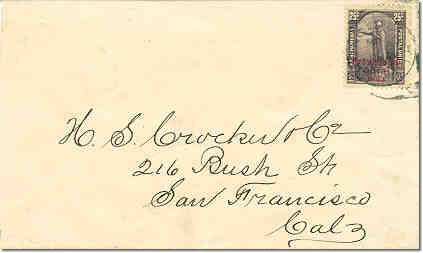 H. S. Crocker & Co
216 Bush St
San Francisco
Cala